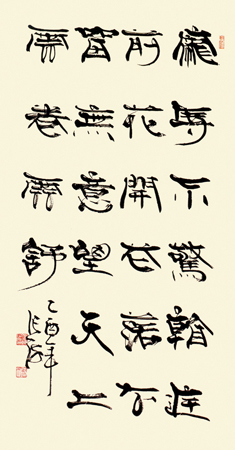 寵辱不驚看庭
前花開花落去
留無意望天上
雲卷雲舒
乙酉年